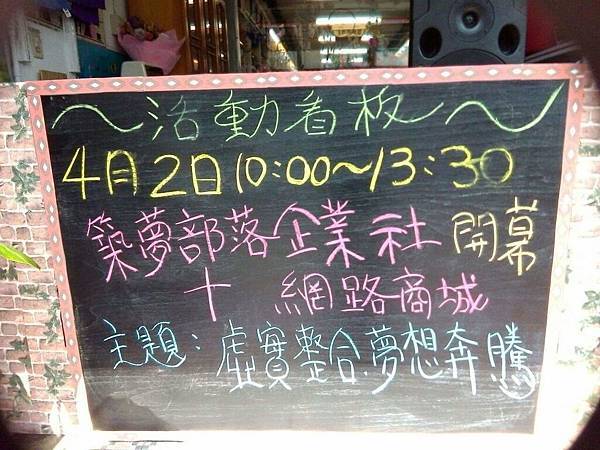 ～活動看板～
4月2日10:00～13:30
築夢部落企業社 開幕
十 網路商城
主題：虛實整合夢想奔騰